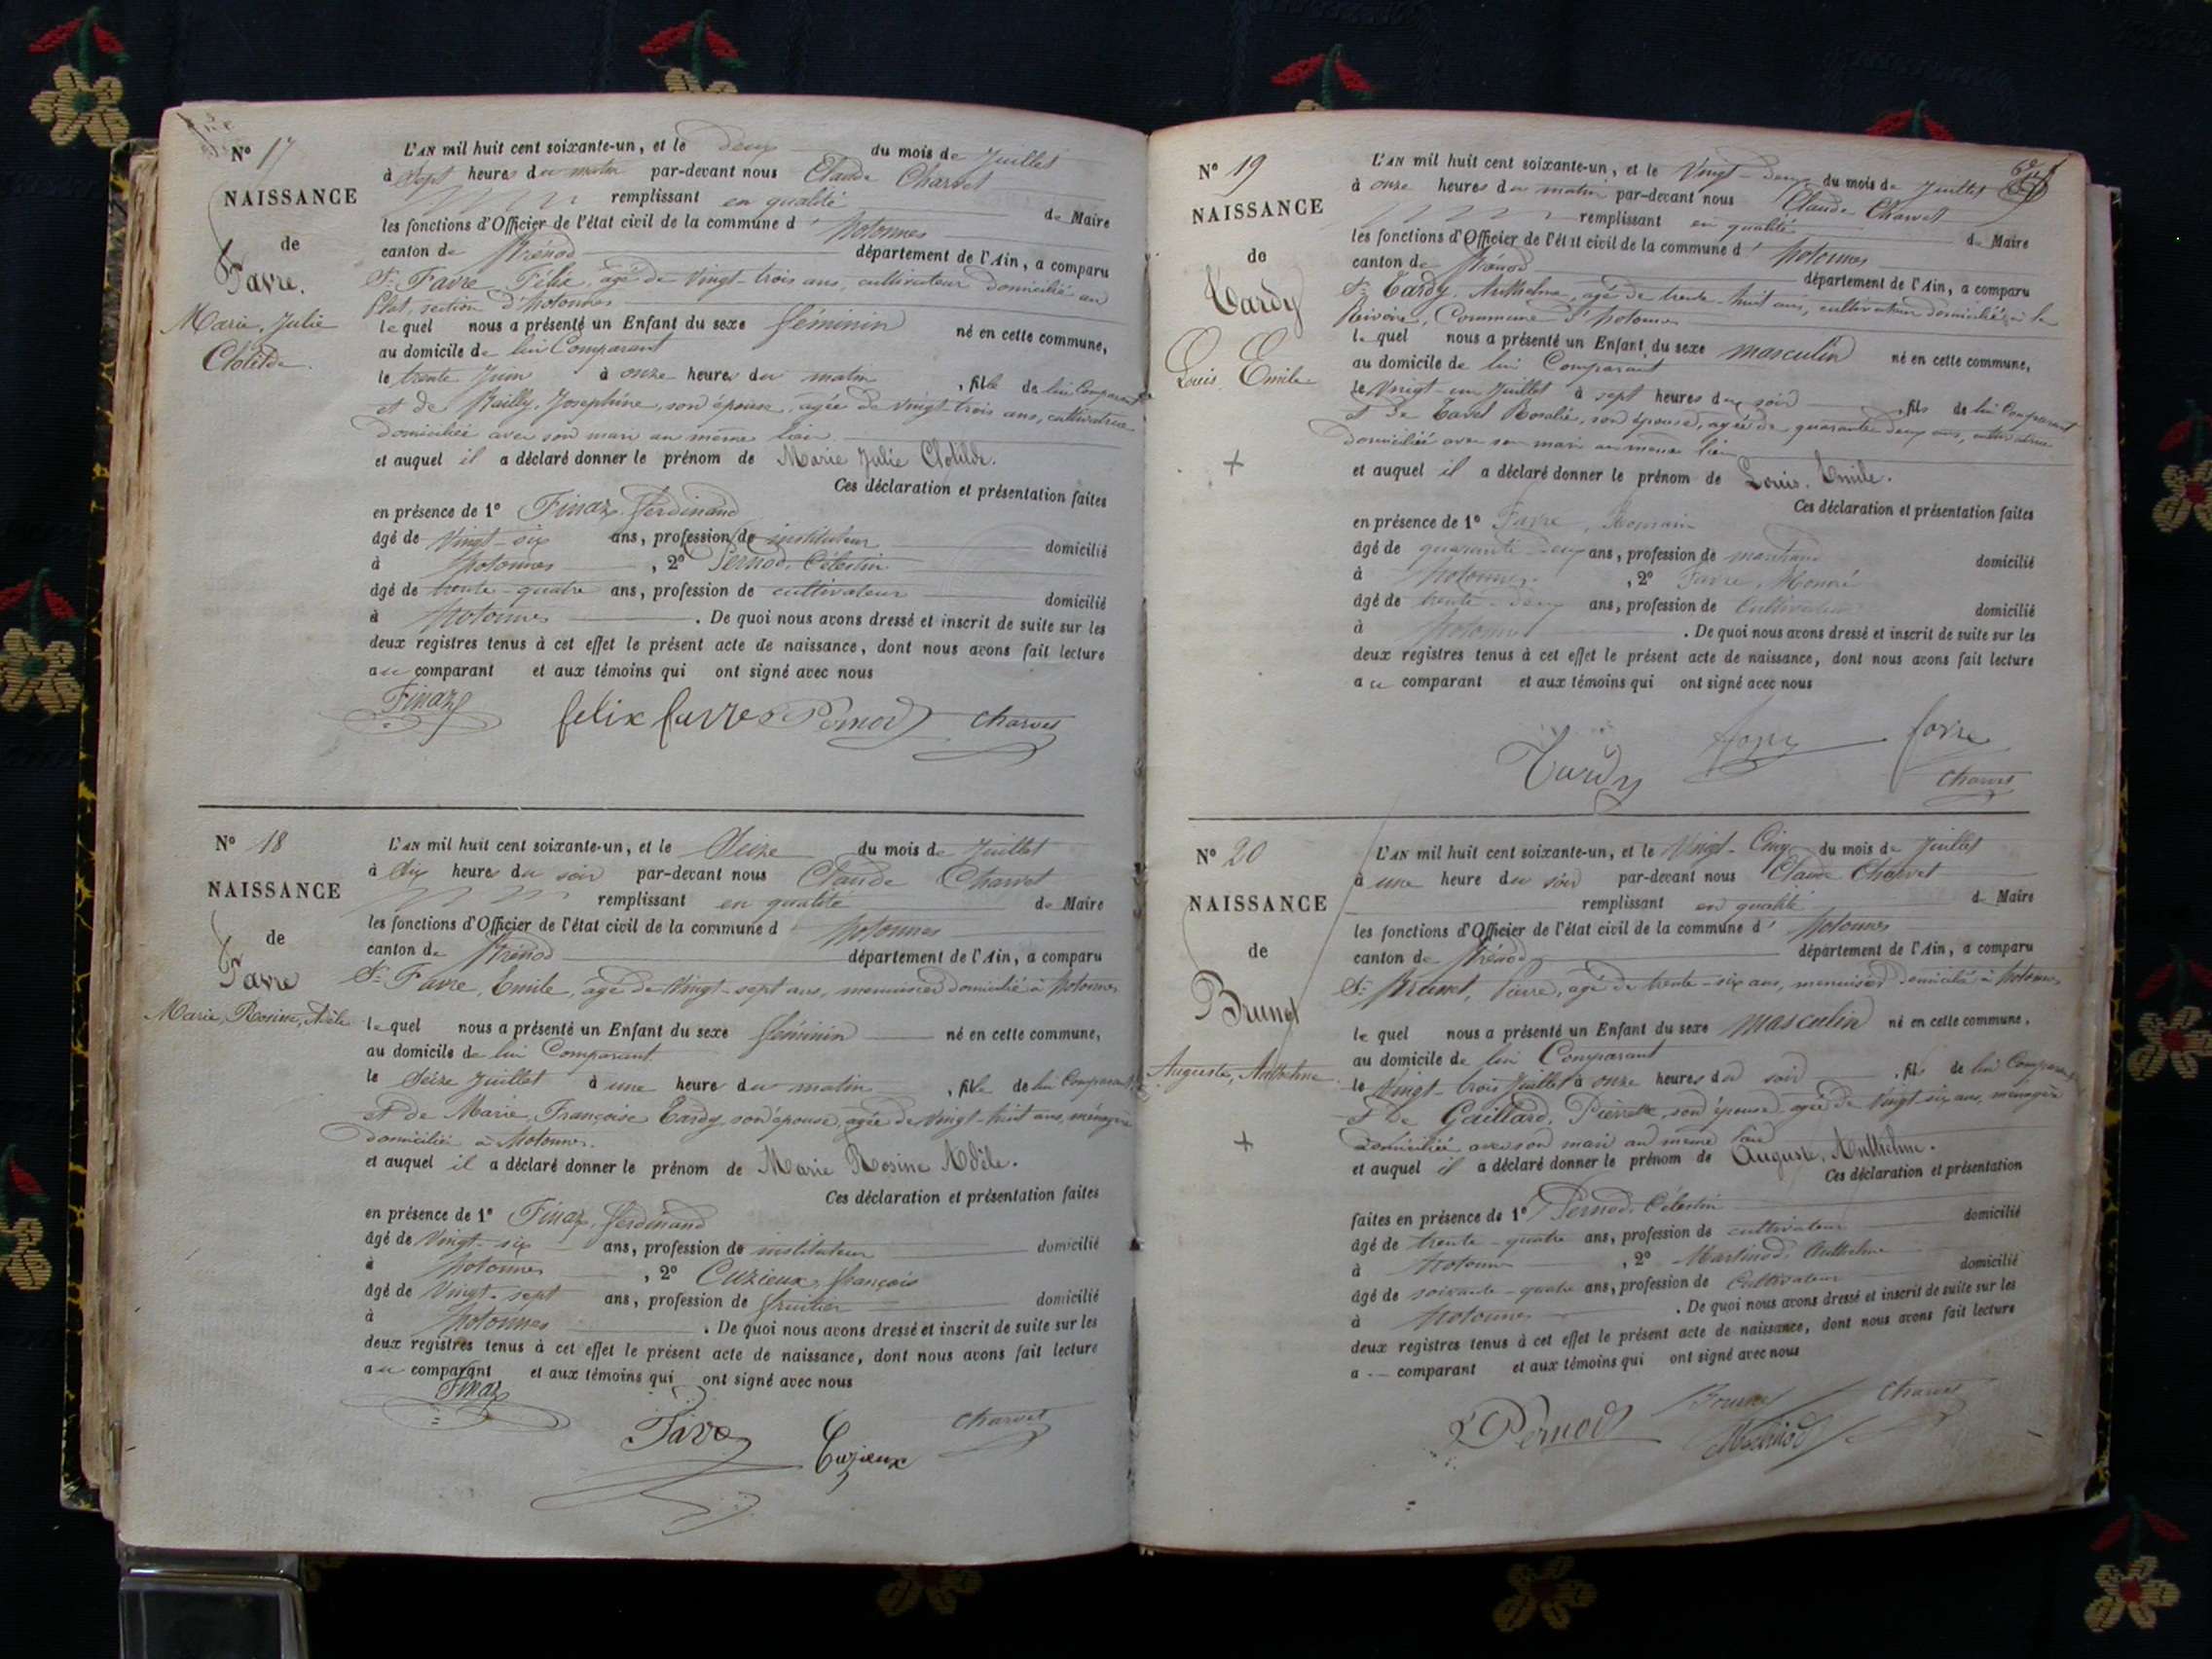 N° 17
NAISSANCE
de
Favre.
Marie, Julie
Clotilde.
L'AN mil huit cent soixante-un, et le deux du mois de Juillet
à Sept heures du matin par-devant nous Claude Charvet
remplissant en qualité de Maire
les fonctions d'Officier de l'état civil de la commune d' hotonnes
canton de Brénod département de l'Ain, a comparu
Sr Favre, Félix, agé de vingt-trois ans, cultivateur domicilié au
Plat, section d'hotonnes
lequel nous a présenté un Enfant du sexe féminin né en cette commune,
au domicile de lui Comparant
le trente Juin à onze heures du matin , fille de lui Comparant
et de Bailly, Josephine, son épouse, agée de vingt-trois ans, cultivatrice
domiciliée avec son mari au même lieu
et auquel il a déclaré donner le prénom de Marie Julie Clotilde.
Ces déclaration et présentation faites
en présence de 1° Finaz, ferdinand
âgé de vingt-six ans, profession de instituteur domicilié
à hotonnes , 2° Pernod, Célestin
âgé de trente-quatre ans, profession de cultivateur domicilié
à hotonnes . De quoi nous avons dressé et inscrit de suite sur les
deux registres tenus à cet effet le présent acte de naissance, dont nous avons fait lecture
au comparant et aux témoins qui ont signé avec nous
Finaz felix favre Pernod Charvet
N° 18
NAISSANCE
de
Favre
Marie, Rosine, Adèle
L'AN mil huit cent soixante-un, et le Seize du mois de Juillet
à Six heures du soir par-devant nous Claude Charvet
remplissant en qualité de Maire
les fonctions d'Officier de l'état civil de la commune d hotonnes
canton de Brénod département de l'Ain, a comparu
Sr Favre, Emile, agé de vingt-sept ans, menuisier domicilié à hotonnes
lequel nous a présenté un Enfant du sexe féminin né en cette commune,
au domicile de lui Comparant
le Seize Juillet à une heure du matin , fille de lui Comparant
et de Marie, Françoise Tardy son épouse, agée de vingt-huit ans, ménagère
domiciliée à hotonnes.
et auquel il a déclaré donner le prénom de Marie Rosine Adèle.
Ces déclaration et présentation faites
en présence de 1° Finaz, ferdinand
âgé de vingt-six ans, profession de instituteur domicilié
à hotonnes , 2° Cuzieux, françois
âgé de vingt-sept ans, profession de fruitier domicilié
à hotonnes . De quoi nous avons dressé et inscrit de suite sur les
deux registres tenus à cet effet le présent acte de naissance, dont nous avons fait lecture
au comparant et aux témoins qui ont signé avec nous
Finaz
Favre Cuzieux Charvet
N° 19
NAISSANCE
de
Tardy
Louis, Emile
+
L'AN mil huit cent soixante-un, et le vingt-deux du mois de Juillet
à onze heures du matin par-devant nous Claude Charvet
remplissant en qualité de Maire
les fonctions d'Officier de l'état civil de la commune d' hotonnes
canton de Brénod département de l'Ain, a comparu
Sr Tardy, Anthelme, agé de trente-huit ans, cultivateur domicilié à la
Rivoire, Commune d'hotonnes
lequel nous a présenté un Enfant du sexe masculin né en cette commune,
au domicile de lui Comparant
le vingt-un Juillet à sept heures du soir , fils de lui Comparant
et de Tavel Rosalie, son épouse, agée de quarante-deux ans, cultivatrice
domiciliée avec son mari au même lieu
et auquel il a déclaré donner le prénom de Louis, Emile.
Ces déclaration et présentation faites
en présence de 1° Favre, Romain
âgé de quarante-deux ans, profession de marchand domicilié
à hotonnes. , 2° Favre, Honoré
âgé de trente-deux ans, profession de Cultivateur domicilié
à hotonnes . De quoi nous avons dressé et inscrit de suite sur les
deux registres tenus à cet effet le présent acte de naissance, dont nous avons fait lecture
au comparant et aux témoins qui ont signé avec nous
Tardy favre
Charvet
N° 20
NAISSANCE
de
Brunet
Auguste, Anthelme
+
L'AN mil huit cent soixante-un, et le vingt-Cinq du mois de Juillet
à une heure du soir par-devant nous Claude Charvet
remplissant en qualité de Maire
les fonctions d'Officier de l'état civil de la commune d' hotonnes
canton de Brénod département de l'Ain, a comparu
Sr Brunet, Pierre, agé de trente-six ans, menuisier domicilié à hotonnes
lequel nous a présenté un Enfant du sexe masculin né en cette commune,
au domicile de lui Comparant
le vingt-trois Juillet à onze heures du soir , fils de lui Comparant
et de Gaillard, Pierrette, son épouse agée de vingt-six ans, ménagère
domiciliée avec son mari au même lieu
et auquel il a déclaré donner le prénom de Auguste, Anthelme.
Ces déclaration et présentation
faites en présence de 1° Pernod, Célestin domicilié
âgé de trente-quatre ans, profession de cultivateur
à hotonnes , 2° Martinod, Anthelme domicilié
âgé de soixante-quatre ans, profession de Cultivateur
à hotonnes . De quoi nous avons dressé et inscrit de suite sur les
deux registres tenus à cet effet le présent acte de naissance, dont nous avons fait lecture
a comparant et aux témoins qui ont signé avec nous
Pernod Charvet
Martinod